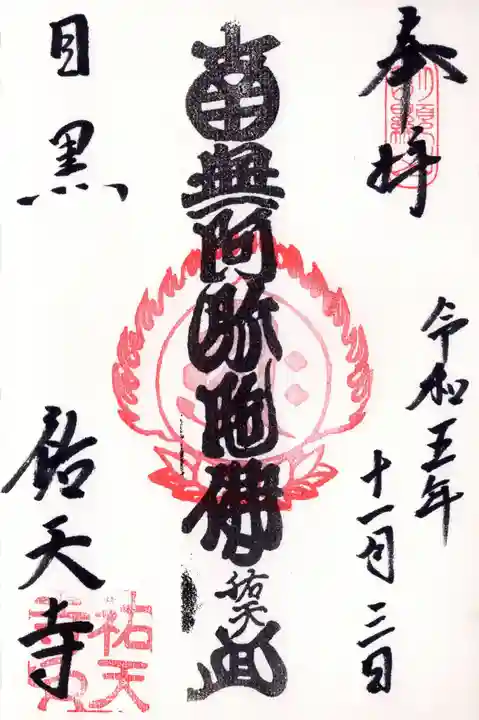 奉拝
令和五年
十一月三日
南無阿弥陀佛
祐天
目黒
祐天寺
祐天